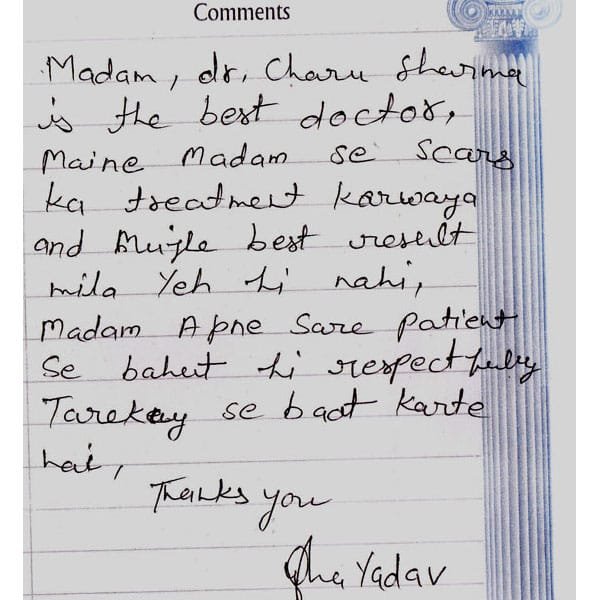 Comments
Madam, dr. Charu Sharma
is the best doctor,
Maine Madam se scars
ka treatment karwaya
and Mujhe best result
mila Yeh hi nahi,
Madam Apne sare patient
se bahut hi respectfully
Tarekay se baat karte
hai,
Thanks you
Yadav